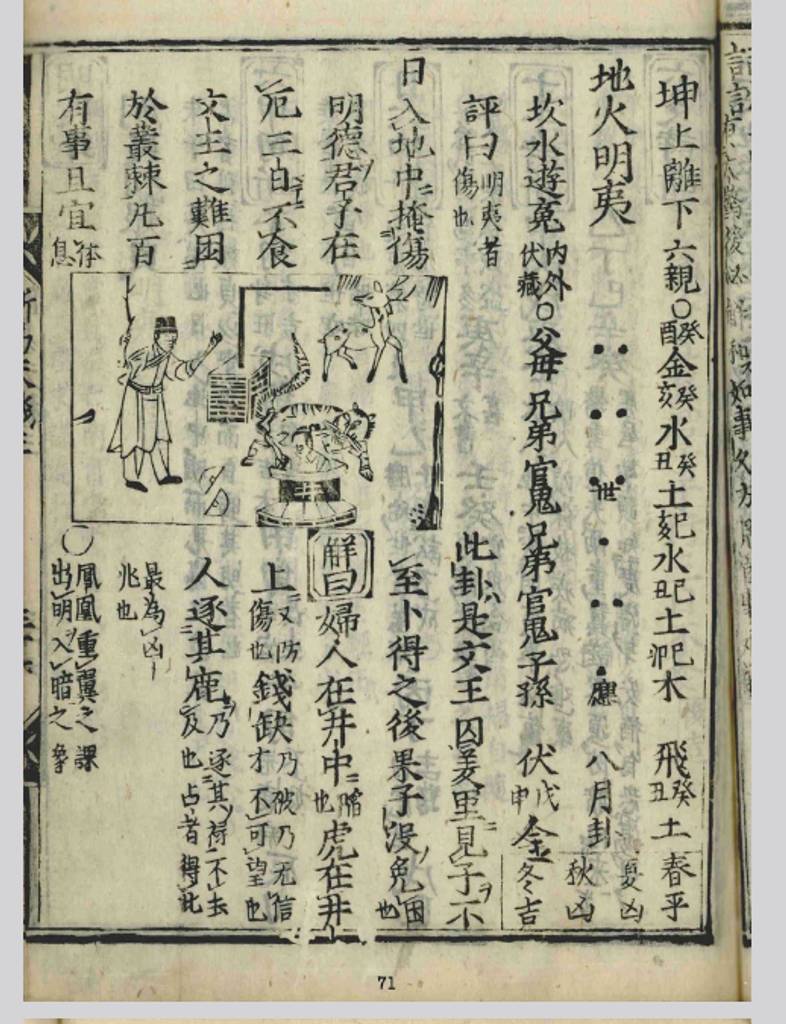 坤上離下 六親○癸酉金癸亥水癸丑土己亥水己丑土己卯木 飛癸丑土 春平
地火明夷 世 應 八月卦 夏凶
秋凶
坎水遊䰟 内外伏藏○父母兄弟官鬼兄弟官鬼子孫 伏戊申金 冬吉
評曰明夷者傷也
日入地中掩傷
明德君子在
厄三日不食
文王之難困
於叢棘凡百
有事且宜休息
此卦是文王囚羑里見子不
至卜得之後果子沒免困也
解曰婦人在井中陷也虎在井
上又防傷也錢缺乃破乃无信才不可望也
人逐其鹿乃逐其祿不去及也占者得此
最為凶兆也
○鳳凰重翼之課出明入暗之象
71